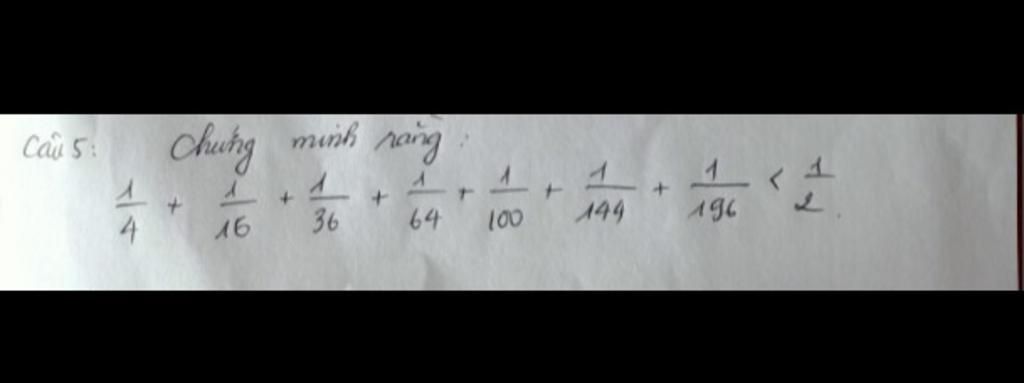 Câu 5: Chứng minh rằng:
1/4 + 1/16 + 1/36 + 1/64 + 1/100 + 1/144 + 1/196 < 1/2.